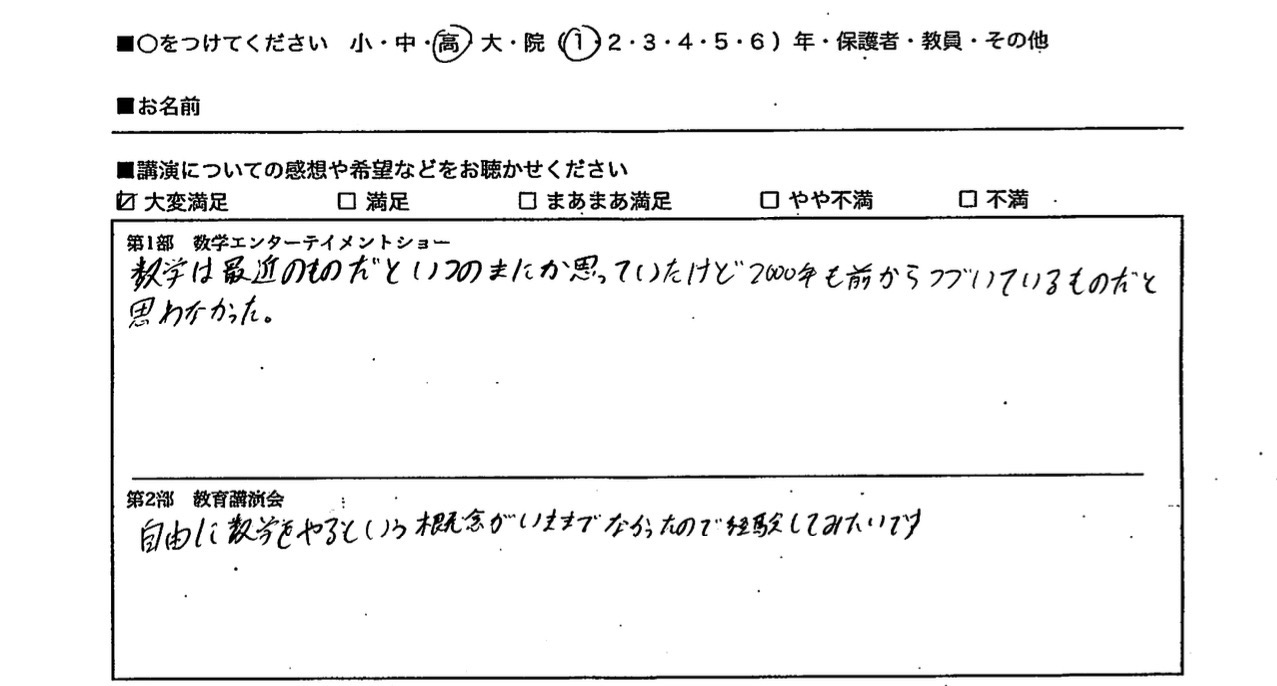 ■○をつけてください 小・中・高・大・院（1・2・3・4・5・6）年・保護者・教員・その他
■お名前
■講演についての感想や希望などをお聴かせください
☑ 大変満足 □ 満足 □ まあまあ満足 □ やや不満 □ 不満
第1部 数学エンターテイメントショー
数学は最近のものだといつのまにか思っていたけど2000年も前からつづいているものだと
思わなかった。
第2部 教育講演会
自由に数学をやるという概念がいままでなかったので経験してみたいです